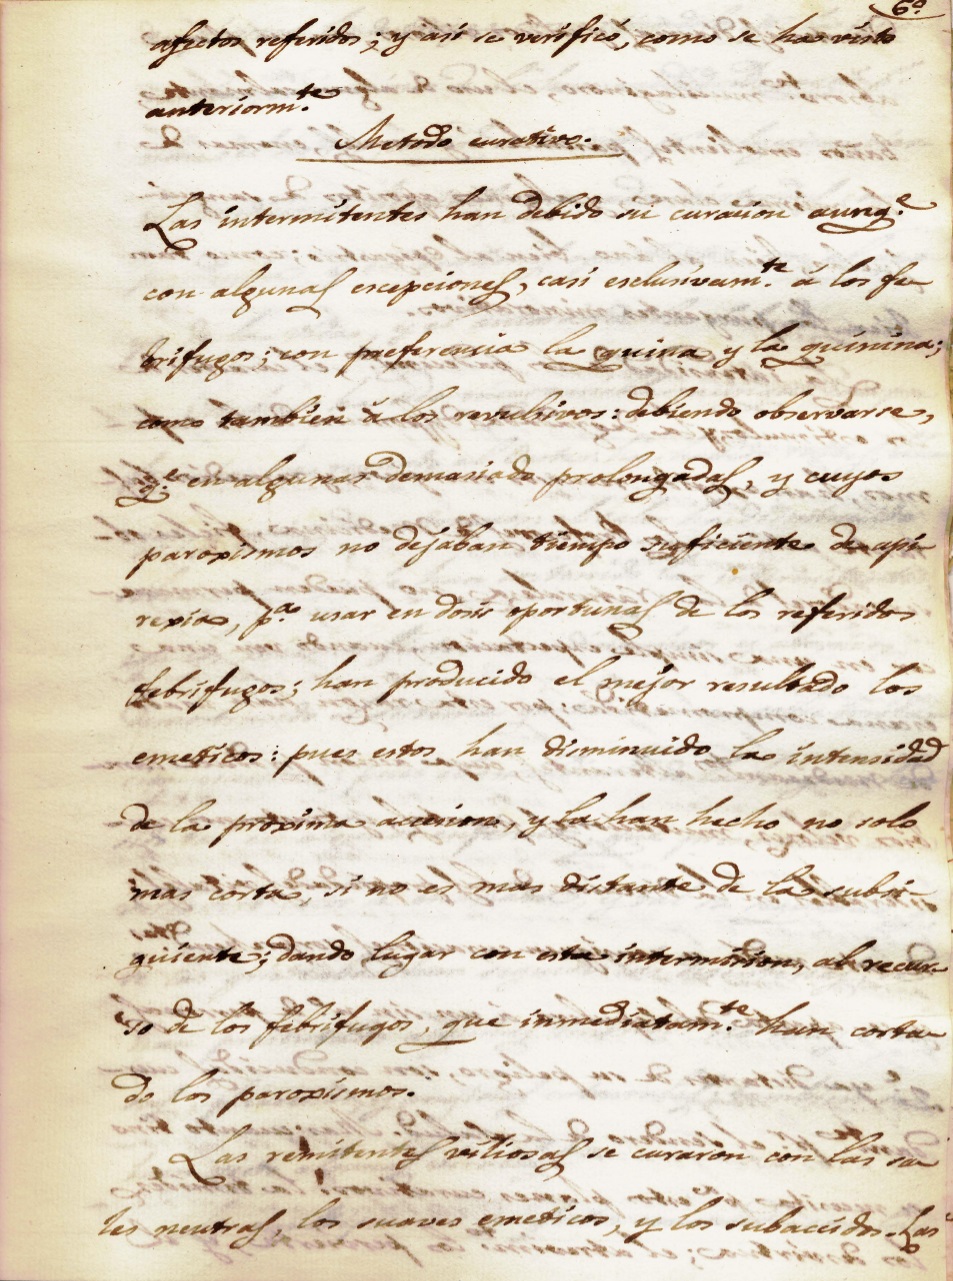 6º
afectos referidos; y asi se verificó, como se ha visto
anteriorm.te
Metodo curativo.
Las intermitentes han debido su curacion aunq.e
con algunas escepciones, casi esclusivam.te á los fe-
brifugos; con preferencia la quina y la quinina;
como tambien á los revulsivos: debiendo observarse,
q.e en algunas demasiado prolongadas, y cuyos
paroxismos no dejaban tiempo suficiente de api-
rexia, p.a usar en dosis oportunas de los referidos
febrifugos; han producido el mejor resultado los
emeticos: pues estos han disminuido la intensidad
de la proxima accesion, y la han hecho no solo
mas corta, si no es mas distante de la subsi-
guiente; dando lugar con esta intermision, al recur-
so de los febrifugos, que inmediatam.te han corta-
do los paroxismos.
Las remitentes viliosas se curaron con las sa-
les neutras, los suaves emeticos, y los subaccidos. Las